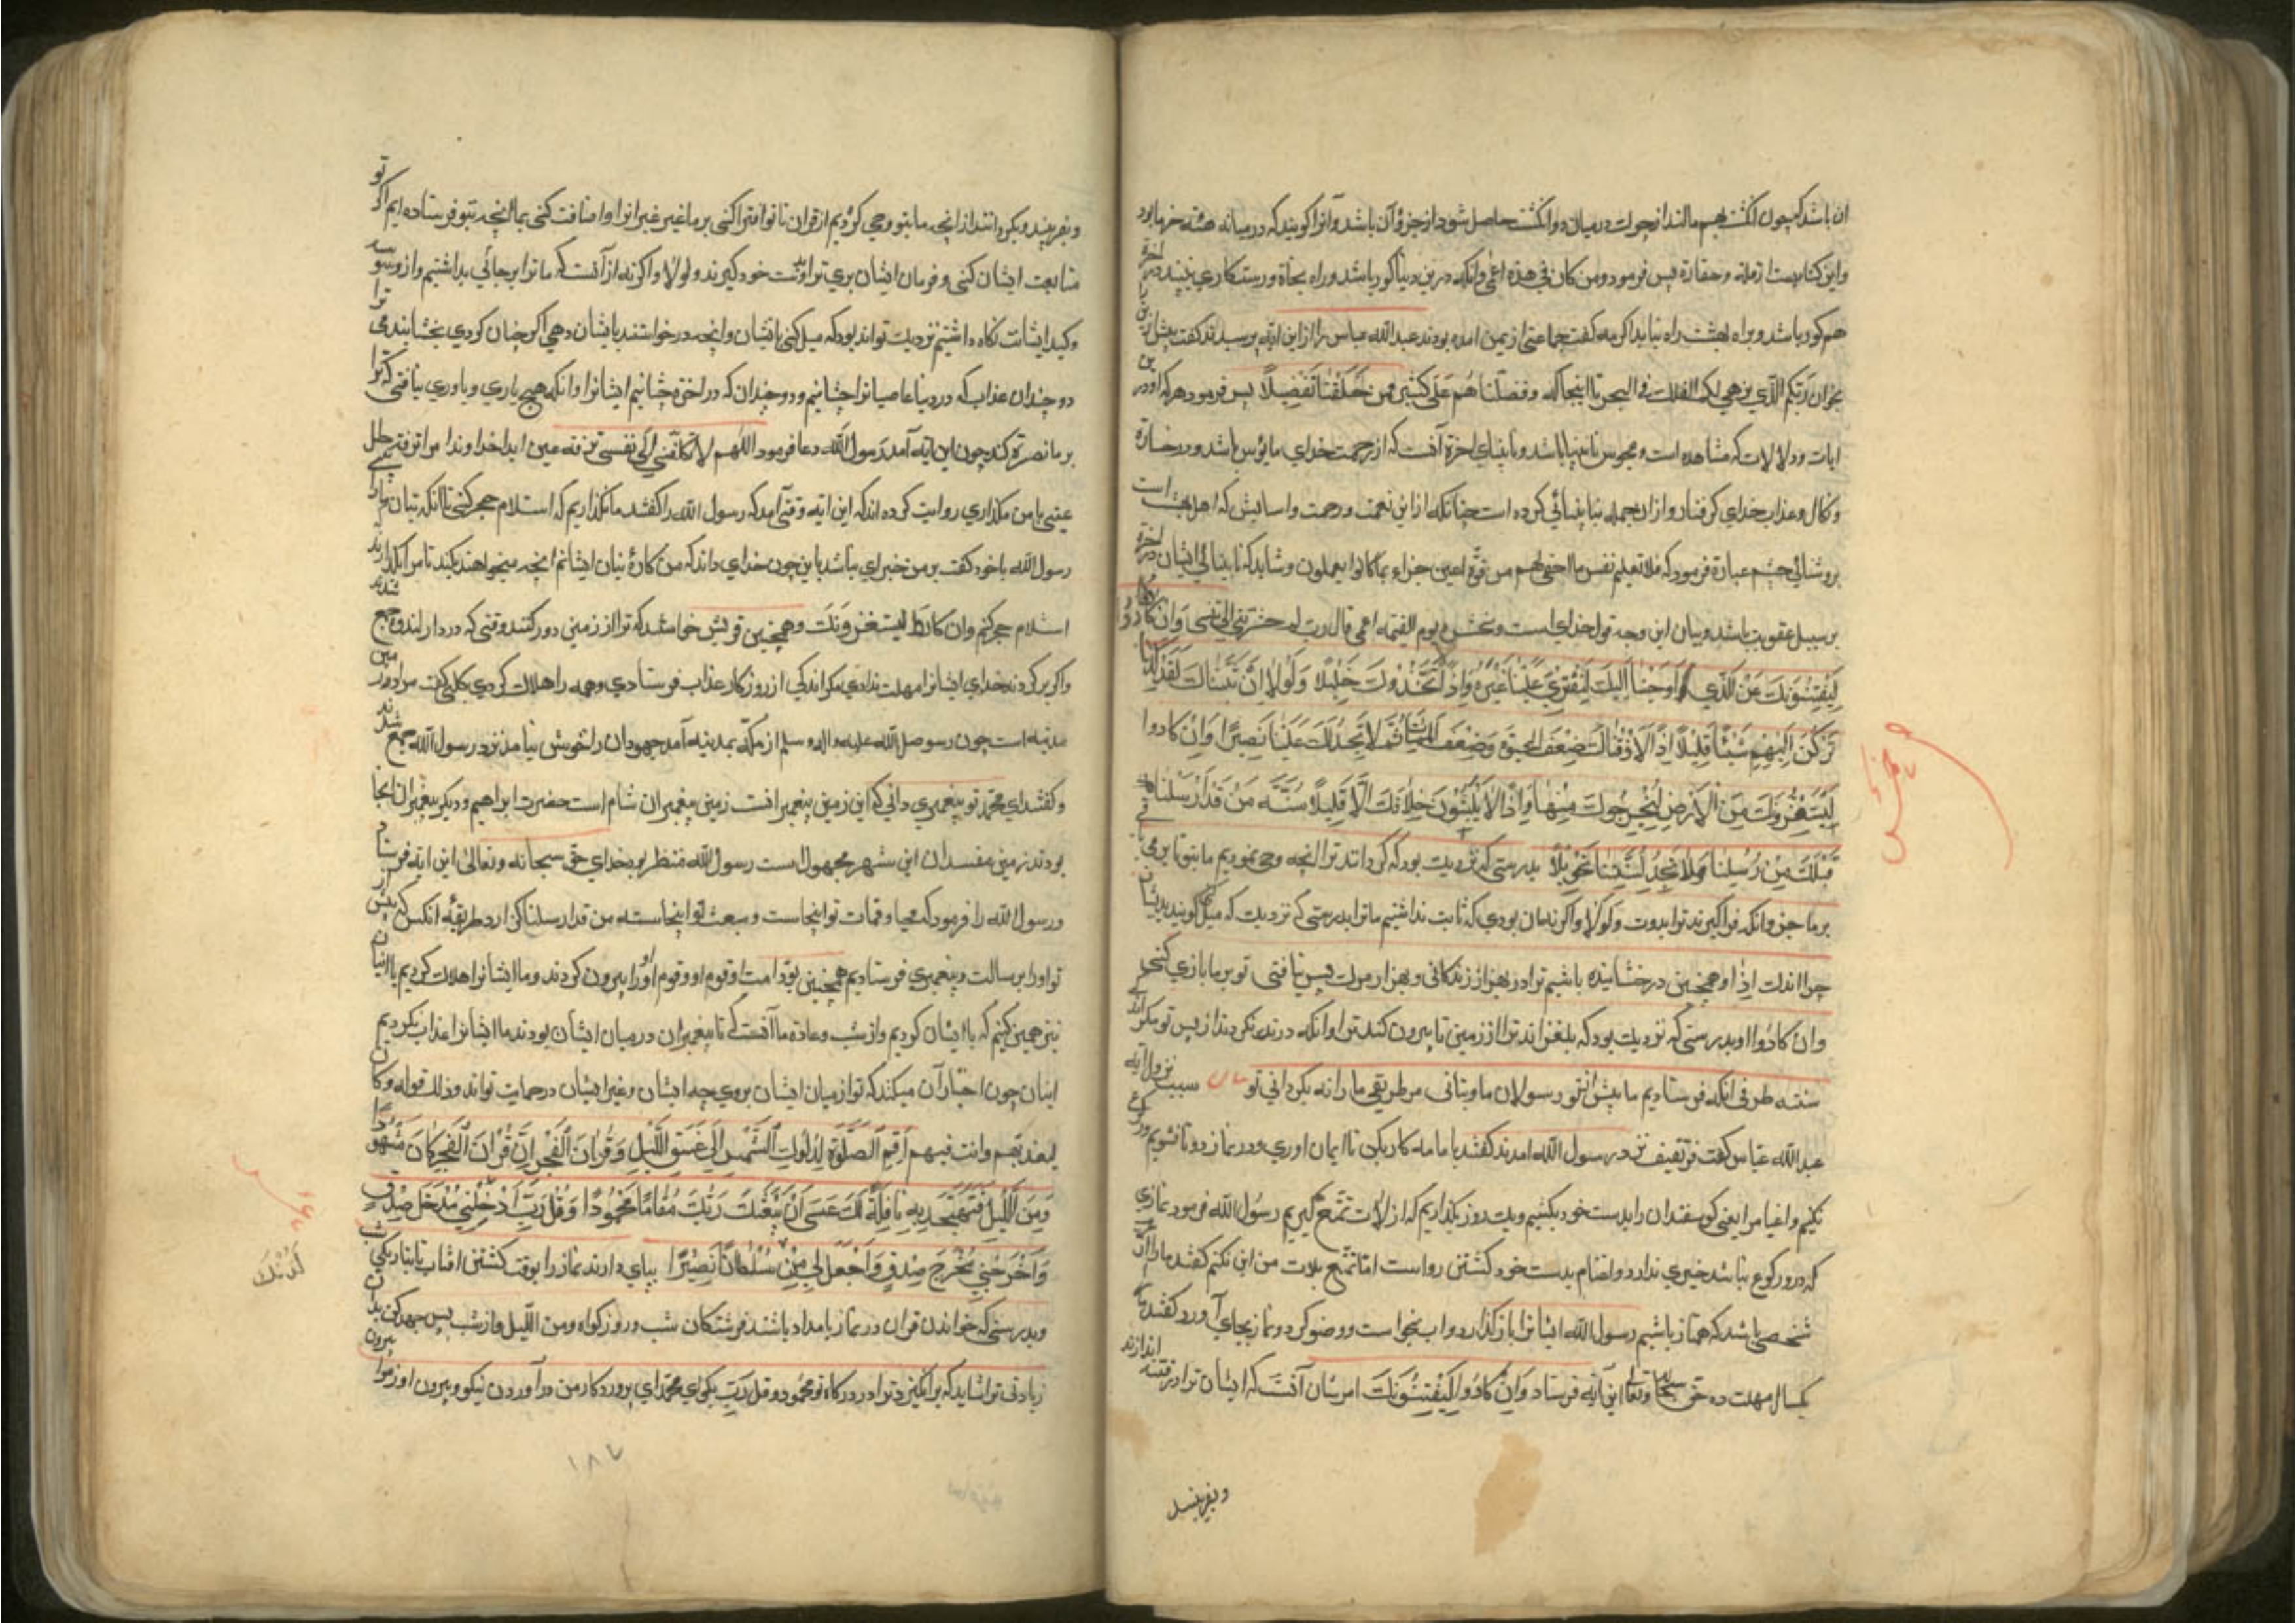 ان باشد که چون انگشت بهم مالند از چرک درمیان دو انگشت حاصل شود از جزؤ آن باشد و آنرا گویند که در میانه هسته خرما بود
و این کنایست از قله و حقارة پس فرمود و من کان فی هذه اعمی و انکه درین دنیا کور باشد و راه نجاة و رستکاری نبیند در اخرة
هم کور باشد و براه بهشت راه نیابد اکرمه کفت جماعتی از یمن امده بودند عبدالله عباس را از این ایه پرسیدند کفت پیش ازین
بخوان ربکم الذی یزجی لکم الفلک فی البحر تا اینجا که و فضلنا هم علی کثیر ممن خلقنا تفضیلا پس فرمود هر که او در این
ایات و دلالات که مشاهده است و محسوس نابینا باشد و نابینای اخرة آنست که از رحمت خدای مایوس باشد و در خسارة
و نکال و عذاب خدای کرفتار و از ان جمله نابینائی کرده است چنانکه از این نعمت و رحمت و اسایش که اهل بهشت است
بروشنائی چشم عبارة فرمود که فلا تعلم نفس ما اخفی لهم من قرة اعین جزاء بما کانوا یعملون و شاید که نابینائی ایشان در اخرة
بر سبیل عقوبت باشد و بیان این وجه قول خدای است و نحشره یوم القیمة اعمی قال رب لم حشرتنی اعمی و ان کادوا
لیفتنونک عن الذی اوحینا الیک لتفتری علینا غیره و اذا لاتخذوک خلیلا و لولا ان ثبتناک لقد کدت
ترکن الیهم شیئا قلیلا اذا لاذقناک ضعف الحیوة و ضعف الممات ثم لا تجد لک علینا نصیرا و ان کادوا
لیستفزونک من الارض لیخرجوک منها و اذا لا یلبثون خلافک الا قلیلا سنة من قد ارسلنا
قبلک من رسلنا و لا تجد لسنتنا تحویلا بدرستی که نزدیک بود که کردانند ترا از انچه وحی نمودیم ما بتو تا بر می بافی
بر ما جز و انکه فرا کیرند ترا بدوست و لولا و اکر نه ان بودی که ثابت نداشتیم ما ترا بدرستی که نزدیک که میل کنی بدیشان
چرا اندک اذا و همچنین در چشانیده باشیم ترا در بهر از زندکانی و بهر از مرک پس نیافتی تو بر ما یاری کنی
و ان کادوا و بدرستی که نزدیک بود که بلغزانند ترا از زمین تا بیرون کنند ترا و انکه درنه نکردند از پس تو مکر اندکی
سنته طرفی انکه فرستادیم ما پیش از تو رسولان ما و نیابی مر طریقی ما را نه بکردانی تو سبب نزول ایه
عبدالله عباس کفت قرثقیف نزد رسول الله امدند کفتند با ما مه کار بکن تا ایمان اوریم و در نماز دوتا نشویم و رکوع
نکنیم و اصنام را یعنی کوسفندان را بدست خود بکشیم و یک روز بکذاریم که از لات تمتع کیریم رسول الله فرمود نمازی
که در و رکوع نباشد خیری ندارد و اصنام بدست خود کشتن رواست اما تمتع بلات من این نکنم کفتند ما را
شخصی باشد که همتاز باشیم رسول الله ایشانرا باز کذارد و اب بخواست و وضو کرد و نماز بجای آورد کفتند ما را
یکسال مهلت ده حق سبحانه و تعالی این آیه فرستاد و ان کادوا لیفتنونک امر شان آنست که ایشان ترا در فتنه اندازند
وبفریبند
و بفریبند و بکردانند از انچه ما بتو وحی کردیم از قران تا تو افترا کنی بر ما غیر غیر انرا و اضافت کنی بما انچه بتو فرستاده ایم اکر تو
متابعت ایشان کنی و فرمان ایشان بری ترا دوست خود کیرند و لولا و اکر نه از آنست که ما ترا بر جائی بداشتیم و از وسوسه
و کید ایشانت نکاه داشتیم نزدیک تو اند بود که میل کنی بایشان و انچه درخواستند بایشان دهی اکر چنان کردی بچشانیدمی ترا
دو چندان عذاب که در دنیا عاصیانرا چشانیم و دو چندان که در اخرة چشانیم ایشانرا و انکه هیچ یاری و یاوری نیافتی که ترا
بر ما نصرة کند چون این ایه آمد رسول الله دعا فرمود اللهم لا تکلنی الی نفسی طرفة عین ابدا خداوندا مرا
یعنی با من مکذاری روایت کرده اند که این ایه وقتی آمد که رسول الله را کفتند ما نکذاریم که استلام حجر کنی تا انکه بتان ما را
رسول الله با خود کفت بر من خیرای باشد باین چون خدای داند که من کارة بتان ایشانم انچه میخواهند بکند تا مرا بکذارند
استلام حجر کنم و ان کادوا لیستفزونک و همچنین قریش خواستند که ترا از زمین دور کنند وقتی که در دار الندوه جمع شدند
و اکر بر کردند خدای ایشانرا مهلت ندادی مکر اندکی از روزکار عذاب فرستادی و همه را هلاک کردی کلبی کفت مراد زمین
مدینه است چون رسول صلی الله علیه و اله و سلم از مکه بمدینه آمد جهودان را خوش نیامد نزد رسول الله جمع شدند
و کفتند ای محمد تو پیغمبری دانی که این زمین پیغمبران نیست زمین پیغمبران شام است حضرت ابراهیم و دیکر پیغمبران انجا
بودند زمین مفسدان این شهر مجهول است رسول الله منتظر بود خدای حق سبحانه و تعالی این ایه فرستاد
و رسول الله را فرمود که محیا و ممات تو اینجاست و مبعث تو اینجاست سنه من قد ارسلنا کذارد طریقه انکس که پیش از
تو او را برسالت و پیغمبری فرستادیم همچنین بود امت او قوم او و قوم او او را بیرون کردند و ما ایشانرا هلاک کردیم با ایشان
نیز همین کنیم که با ایشان کردیم و از سبب و عادة ما آنست که تا پیغمبران در میان ایشان بودند ما ایشانرا عذاب نکردیم
ایشان چون اختیار آن میکند که تو از میان ایشان بروی چه ایشان و غیر ایشان در حمایت تو اند و ذلک قوله و ما کان
لیعذبهم و انت فیهم اقم الصلوة لدلوک الشمس الی غسق اللیل و قران الفجر ان قران الفجر کان مشهودا
و من اللیل فتهجد به نافلة لک عسی ان یبعثک ربک مقاما محمودا و قل رب ادخلنی مدخل صدق
و اخرجنی مخرج صدق و اجعل لی من سلطانا نصیرا بپای دارند نماز را بوقت کشتن افتاب تا بتاریکی شب
و بدرستی که خواندن قران در نماز بامداد باشند فرشتکان شب و روز کواه و من اللیل و از شب پس جهد کن بدان
زیادتی ترا شاید که برانکیزد ترا در درکاه تو محمود و قل رب بکو ای محمد ای پروردکار من در آوردن نیکو و بیرون اور مرا بیرون
لدنک
۱۸٤